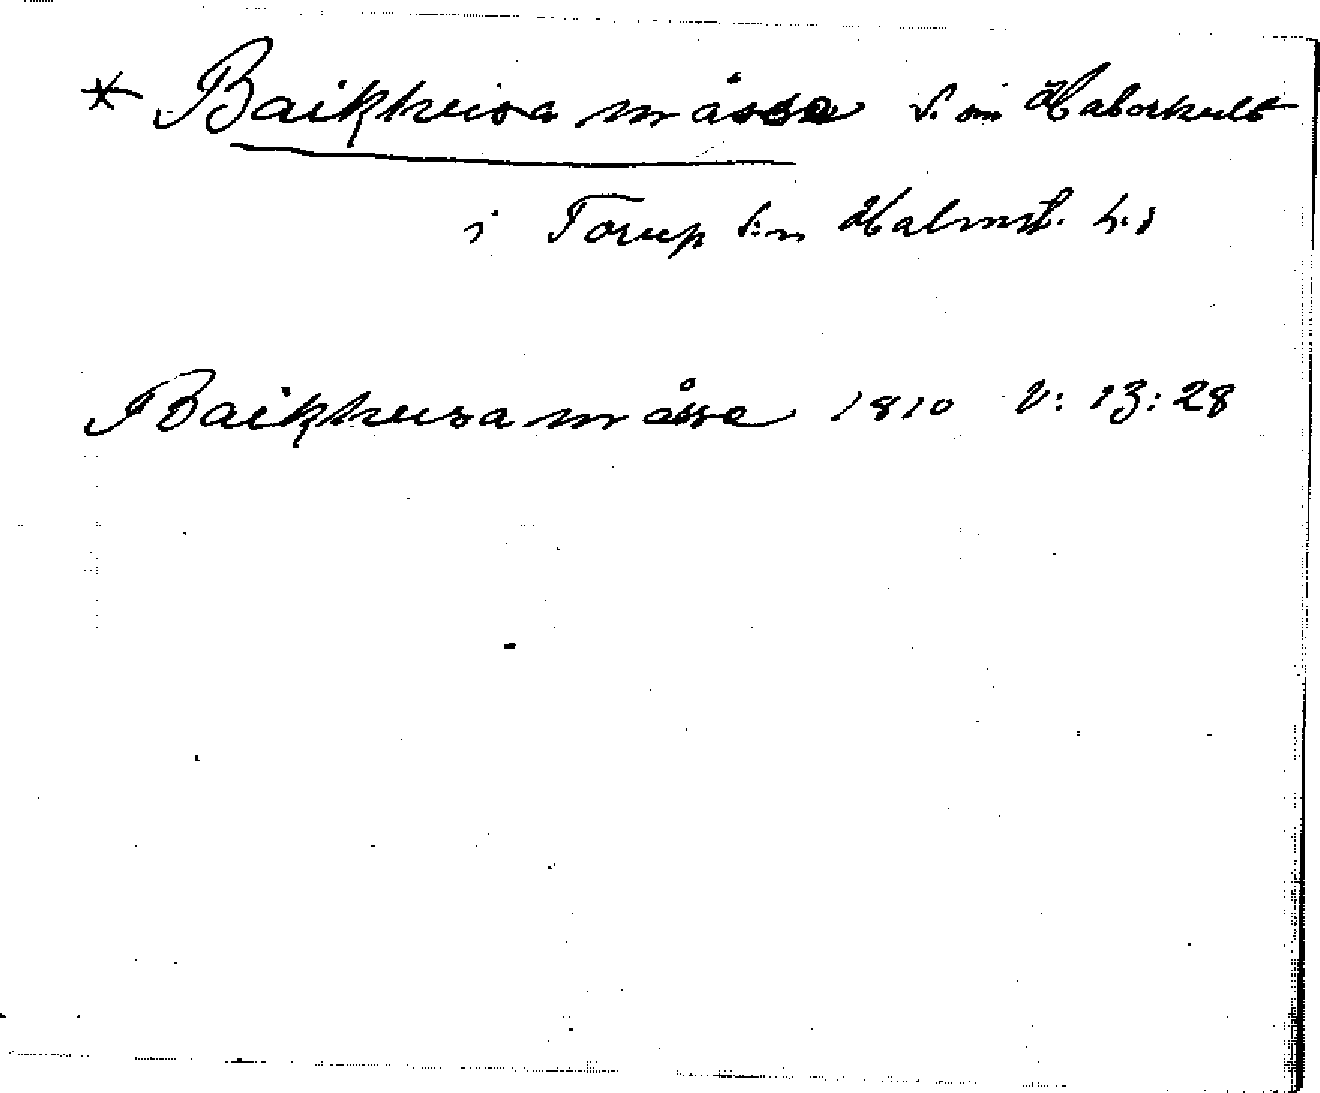 * Baikhusa måsse V. om Haborhult
i Torup sn Halmst. h:d
Baikhusa måsse 1810 V: 13: 28